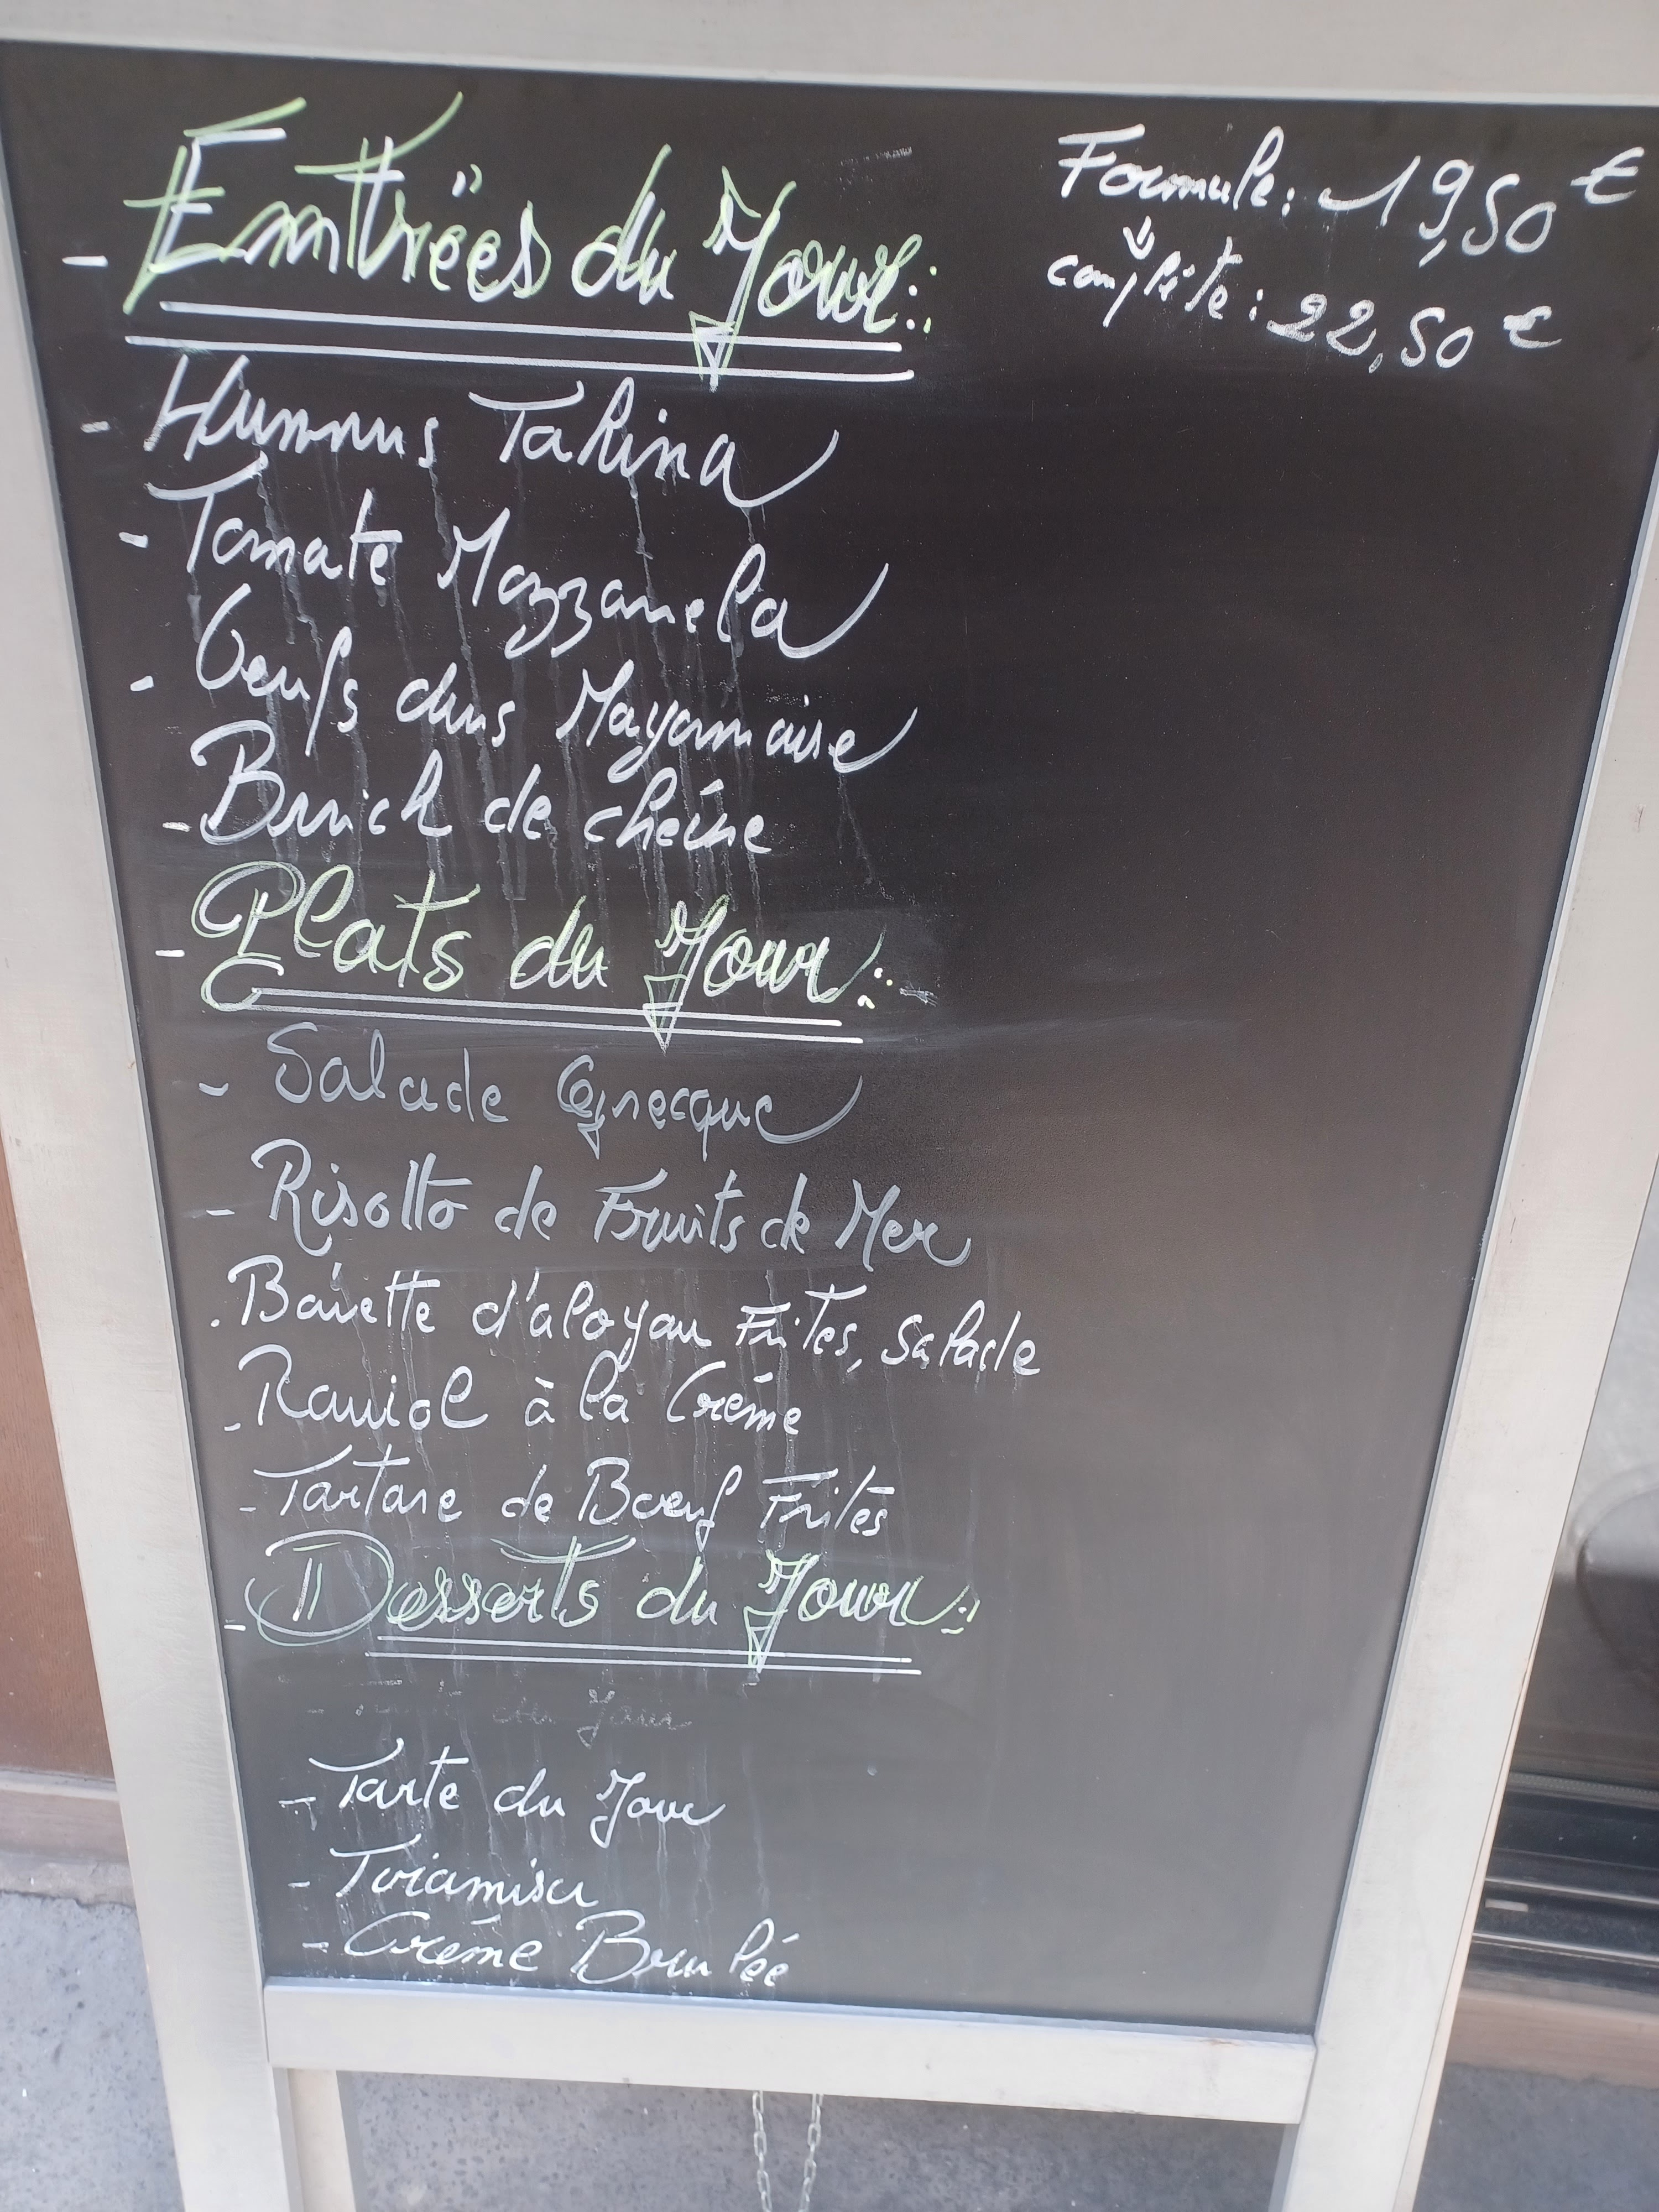 - Entrées du Jour:
Formule: 19,50 €
complète: 22,50 €
- Hummus Tahina
- Tomate Mozzarela
- Oeufs durs Mayonnaise
- Brrick de chèvre
- Plats du Jour:
- Salade Grecque
- Risotto de Fruits de Mer
- Bavette d'aloyau Frites, Salade
- Raviol à la Crème
- Tartare de Boeuf Frites
- Desserts du Jour:
- du Jour
- Tarte du Jour
- Tiramisu
- Crème Brulée